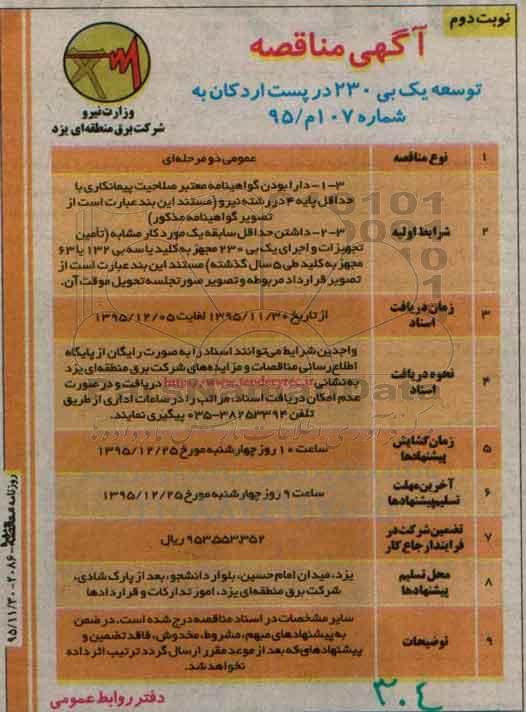 نوبت دوم
آگهی مناقصه
توسعه یک بی ۲۳۰ در پست اردکان به
شماره ۱۰۷م/۹۵
وزارت نیرو
شرکت برق منطقه‌ای یزد
۱ نوع مناقصه عمومی دو مرحله‌ای
۳-۱- دارا بودن گواهینامه معتبر صلاحیت پیمانکاری با
حداقل پایه ۴ در رشته نیرو (مستند این بند عبارت است از
تصویر گواهینامه مذکور)
۲ شرایط اولیه ۳-۲- داشتن حداقل سابقه یک مورد کار مشابه (تأمین
تجهیزات و اجرای یک بی ۲۳۰ مجهز به کلید یا سه بی ۱۳۲ یا ۶۳
مجهز به کلید طی ۵ سال گذشته) مستند این بند عبارت است از
تصویر قرارداد مربوطه و تصویر صورتجلسه تحویل موقت آن.
۳ زمان دریافت اسناد از تاریخ ۱۳۹۵/۱۱/۳۰ لغایت ۱۳۹۵/۱۲/۰۵
واجدین شرایط می‌توانند اسناد را به صورت رایگان از پایگاه
اطلاع رسانی مناقصات و مزایده‌های شرکت برق منطقه‌ای یزد
۴ نحوه دریافت اسناد به نشانی http://www.tenderytec.ir دریافت و در صورت
عدم امکان دریافت اسناد، مراتب را در ساعات اداری از طریق
تلفن ۳۸۲۵۳۳۹۴-۰۳۵ پیگیری نمایند.
۵ زمان گشایش پیشنهادها ساعت ۱۰ روز چهارشنبه مورخ ۱۳۹۵/۱۲/۲۵
۶ آخرین مهلت تسلیم پیشنهادها ساعت ۹ روز چهارشنبه مورخ ۱۳۹۵/۱۲/۲۵
۷ تضمین شرکت در فرایند ارجاع کار ۹۵۳،۵۵۳،۳۵۲ ریال
۸ محل تسلیم پیشنهادها یزد، میدان امام حسین، بلوار دانشجو، بعد از پارک شادی،
شرکت برق منطقه‌ای یزد، امور تدارکات و قراردادها
سایر مشخصات در اسناد مناقصه درج شده است. در ضمن
۹ توضیحات به پیشنهادهای مبهم، مشروط، مخدوش، فاقد تضمین و
پیشنهادهای که بعد از موعد مقرر ارسال گردد ترتیب اثر داده
نخواهد شد.
دفتر روابط عمومی
۳۰۴
روزنامه مناقصه - ۲۰۸۶ - ۹۵/۱۱/۳۰